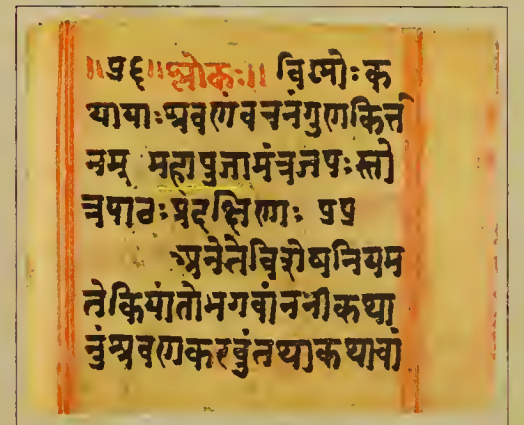 ॥प्र६॥श्लोकः॥ विष्णोः क
थायाः श्रवणं वचनंगुणकिर्त्त
नम् महापुजामंत्रजपःस्तो
त्रपाठः प्रदक्षिणाः प्रप्र
तेविशेषनियम
तेकियांतोभगवांननीकथा
नुंश्रवणकरवुंतथाकथावां